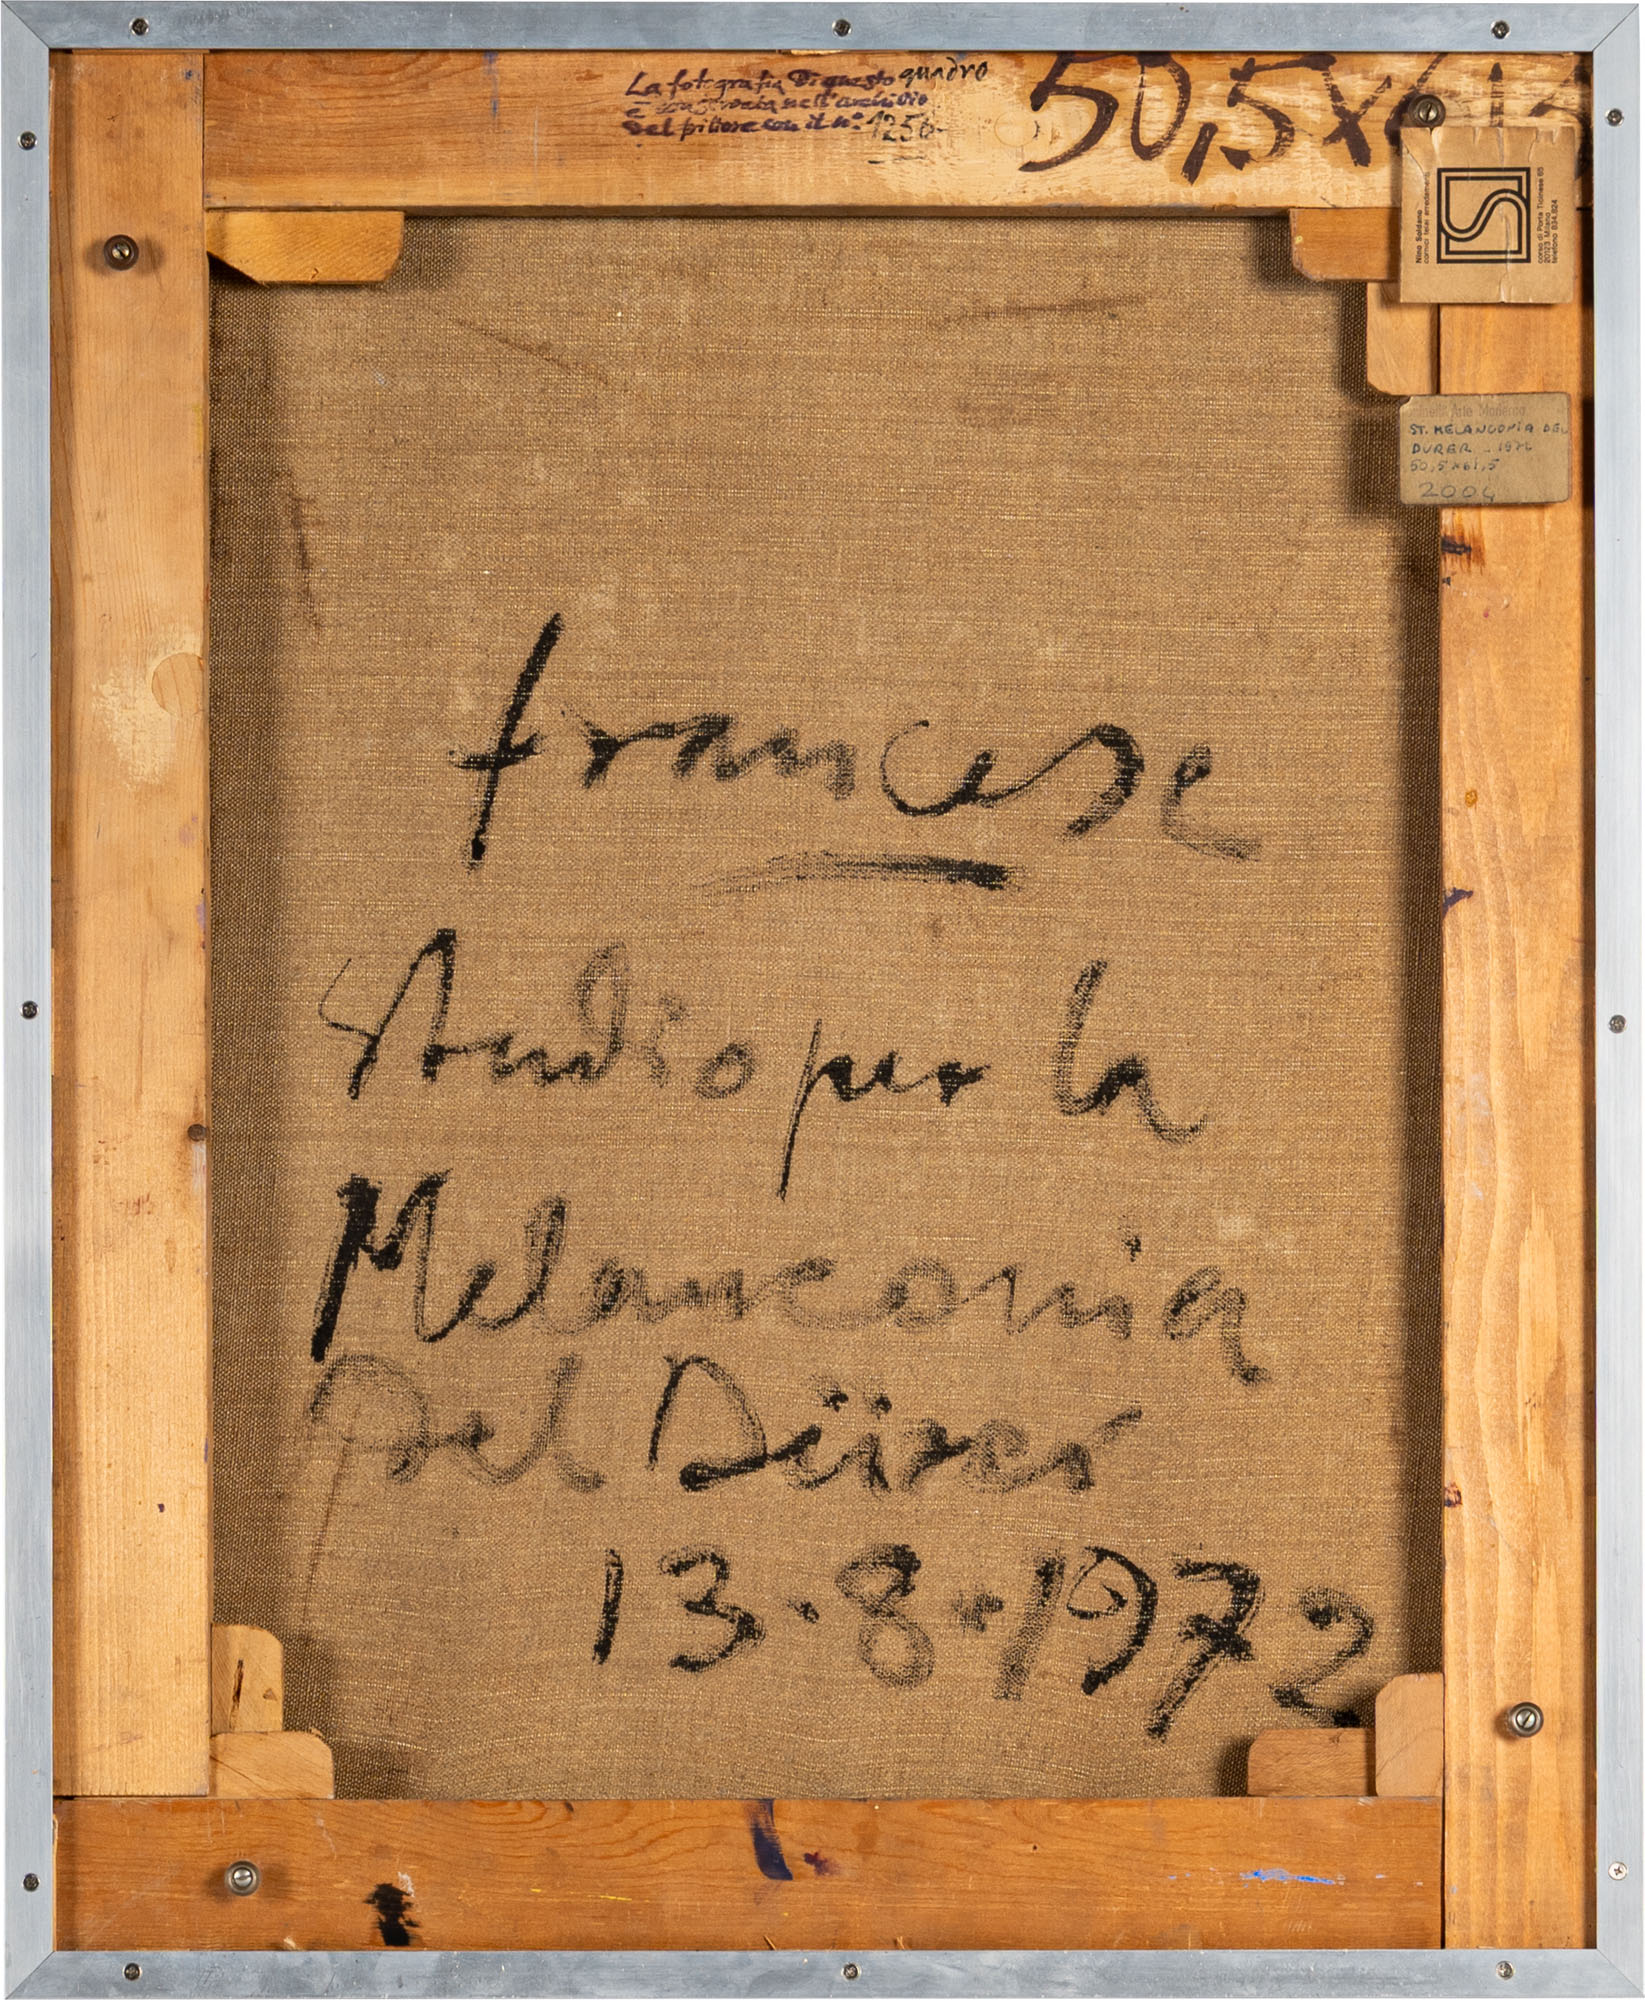 La fotografia di questo quadro
è conservata nell'archivio
del pittore con il n° 1256
50,5x6
Nino Soldano
cornici telai arredamenti
corso di Porta Ticinese 65
20123 Milano
telefono 834.924
Arte Moderna
ST. MELANCONIA DEL
DURER - 1972
50,5x61,5
2004
francese
Studio per la
Melanconia
Del Dürer
13.8.1972